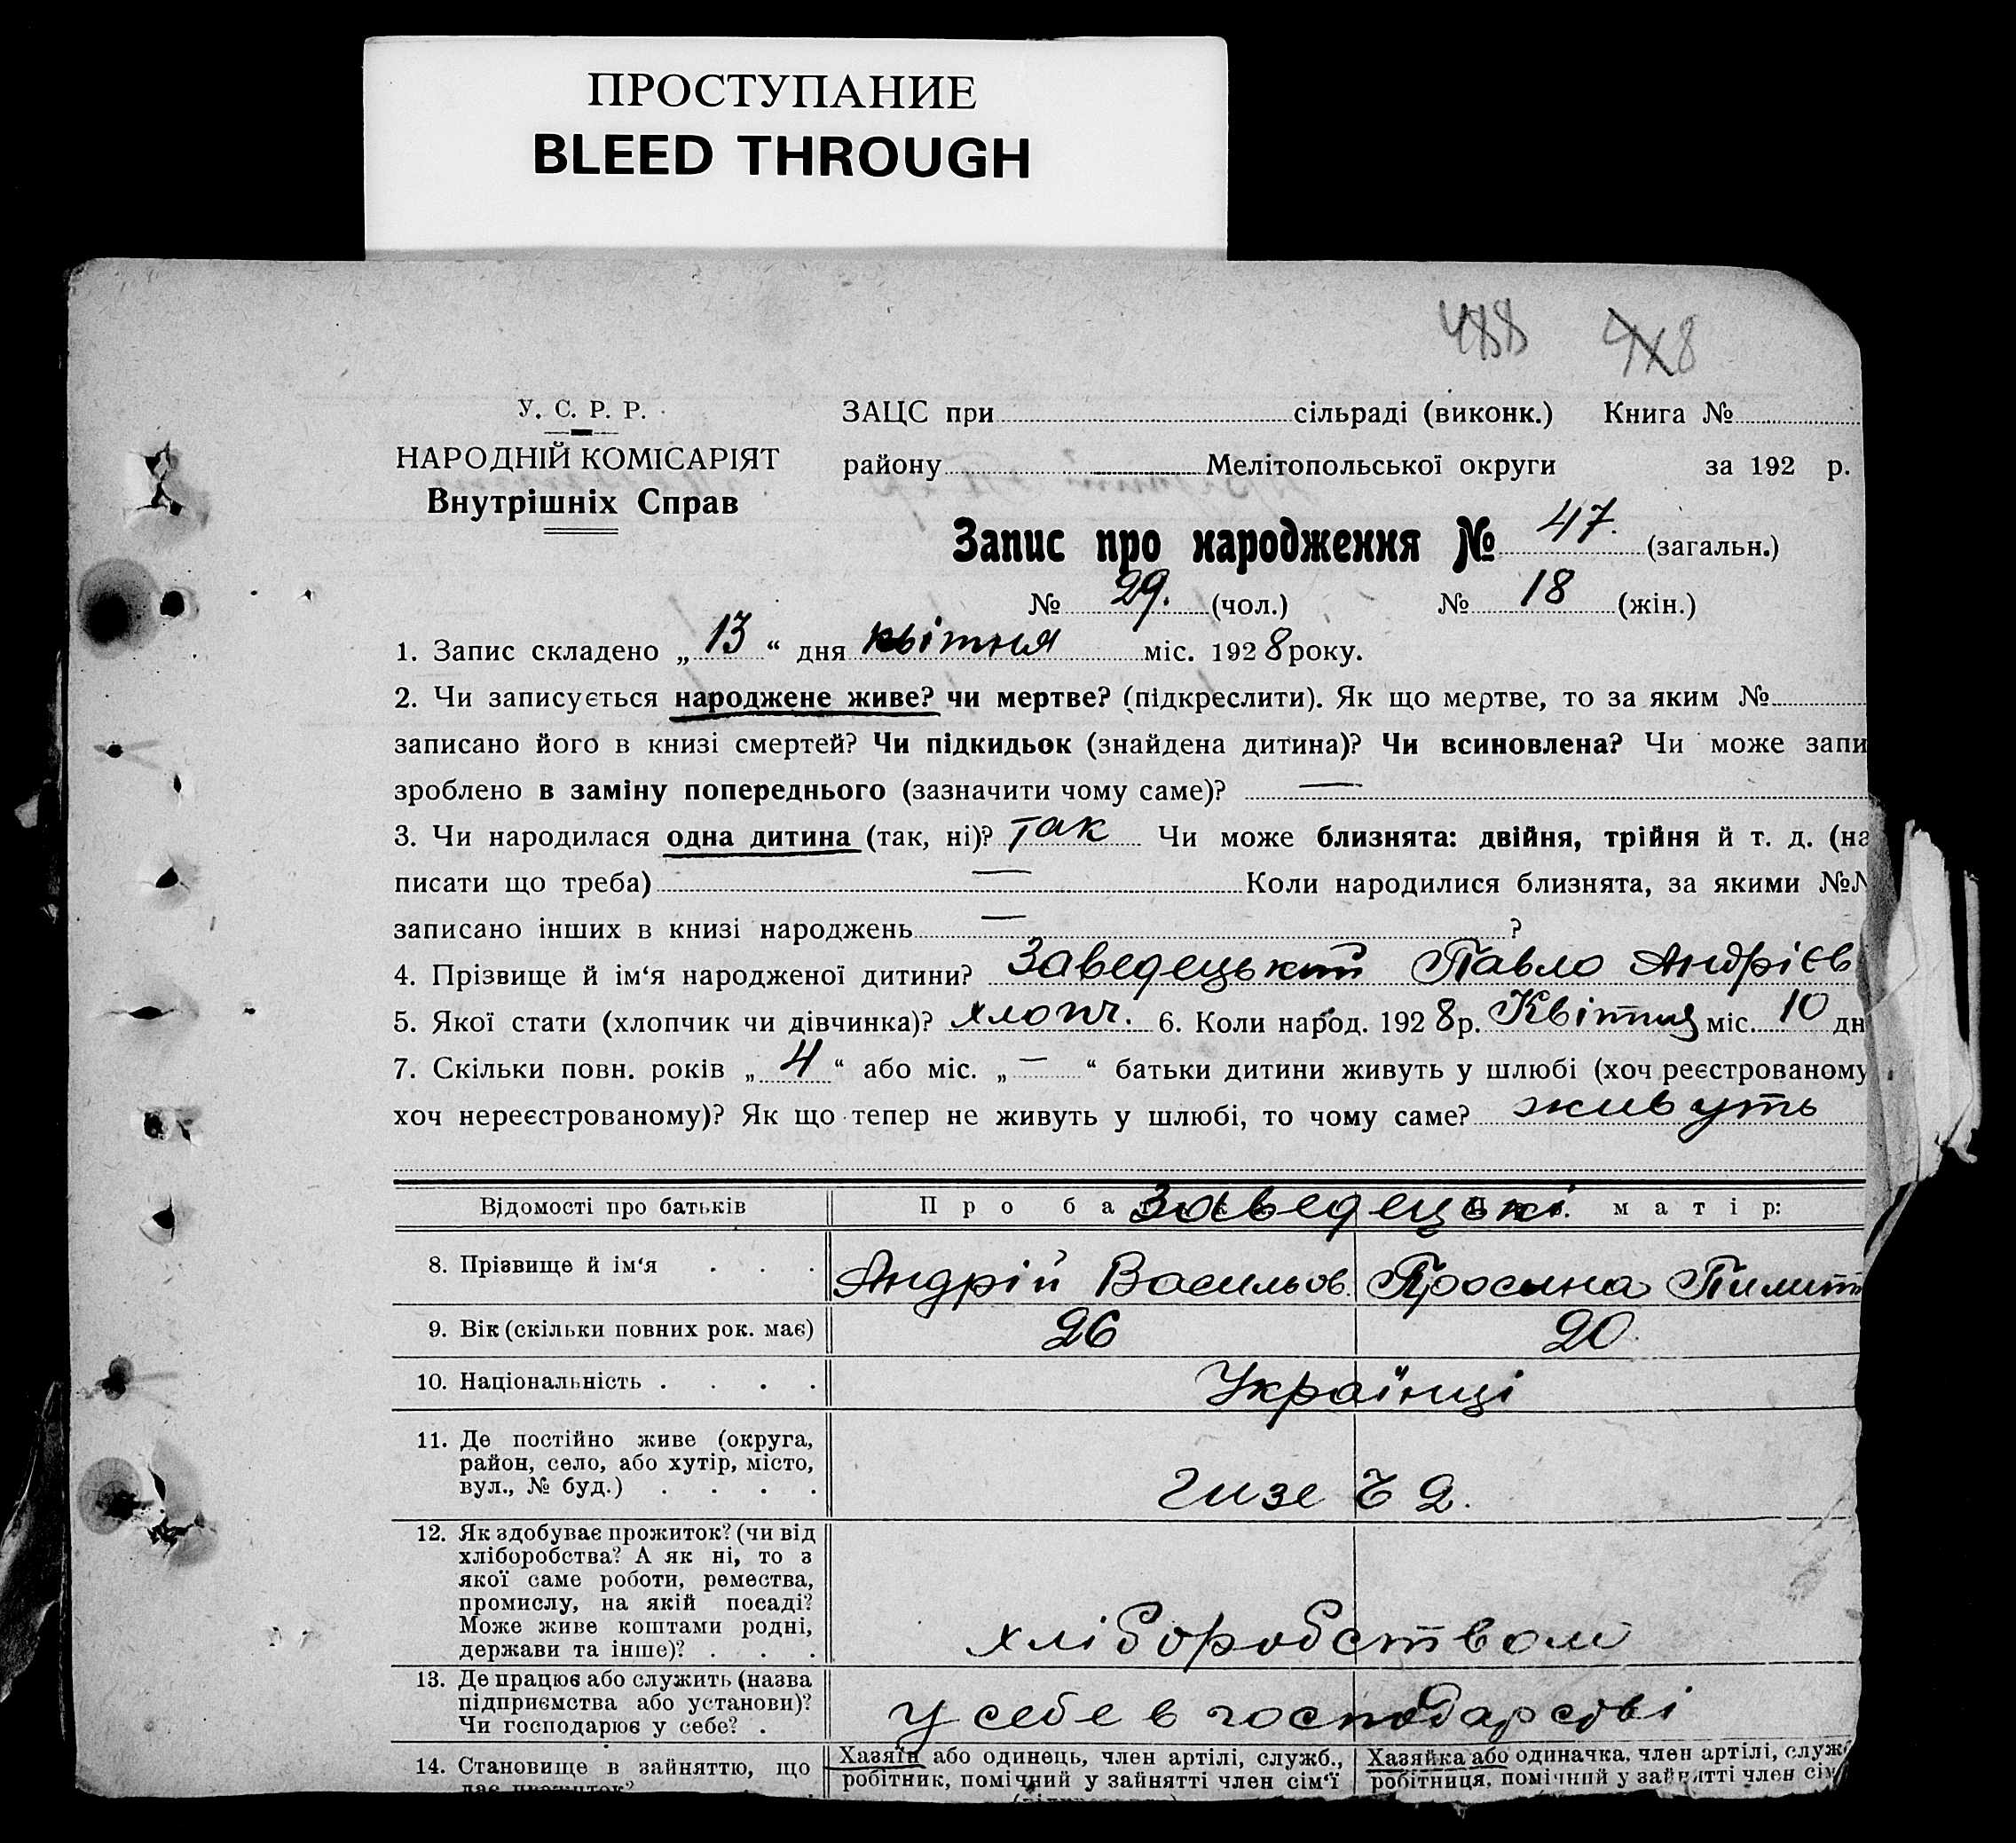 ПРОСТУПАНИЕ
BLEED THROUGH
488 448
У. С. Р. Р.
НАРОДНІЙ КОМІСАРІЯТ
Внутрішніх Справ
ЗАЦС при сільраді (виконк.) Книга №
району Мелітопольської округи за 192 р.
Запис про народження № 47. (загальн.)
№ 29. (чол.) № 18 (жін.)
1. Запис складено „ 13 “ дня квітня міс. 1928 року.
2. Чи записується народжене живе? чи мертве? (підкреслити). Як що мертве, то за яким №
записано його в книзі смертей? Чи підкидьок (знайдена дитина)? Чи всиновлена? Чи може запи
зроблено в заміну попереднього (зазначити чому саме)? —
3. Чи народилася одна дитина (так, ні)? так Чи може близнята: двійня, трійня й т. д. (на
писати що треба) — Коли народилися близнята, за якими №№
записано інших в книзі народжень — ?
4. Прізвище й ім‘я народженої дитини? Заведецький Павло Андрієв
5. Якої стати (хлопчик чи дівчинка)? хлопч. 6. Коли народ. 1928 р. Квітня міс. 10 дн
7. Скільки повн. років „ 4 “ або міс. „ — “ батьки дитини живуть у шлюбі (хоч реєстрованому
хоч нереєстрованому)? Як що тепер не живуть у шлюбі, то чому саме? живуть
Відомості про батьків Про ба Заведецькі. матір:
8. Прізвище й ім‘я . . . Андрій Васильов. Просина Пилип
9. Вік (скільки повних рок. має) 26 20.
10. Національність . . . . Українці
11. Де постійно живе (округа,
район, село, або хутір, місто,
вул., № буд.) . . . .
Гизе Ч 2.
12. Як здобуває прожиток? (чи від
хліборобства? А як ні, то з
якої саме роботи, ремества,
промислу, на якій посаді?
Може живе коштами родні,
держави та інше)? . . .
хліборобством
13. Де працює або служить (назва
підприємства або установи)?
Чи господарює у себе? .
у себе в господарстві
14. Становище в зайняттю, що
дає прожиток?
Хазяїн або одинець, член артілі, служб.,
робітник, помічний у зайнятті член сім‘ї
Хазяйка або одиначка, член артілі, служ
робітниця, помічний у зайнятті член сім